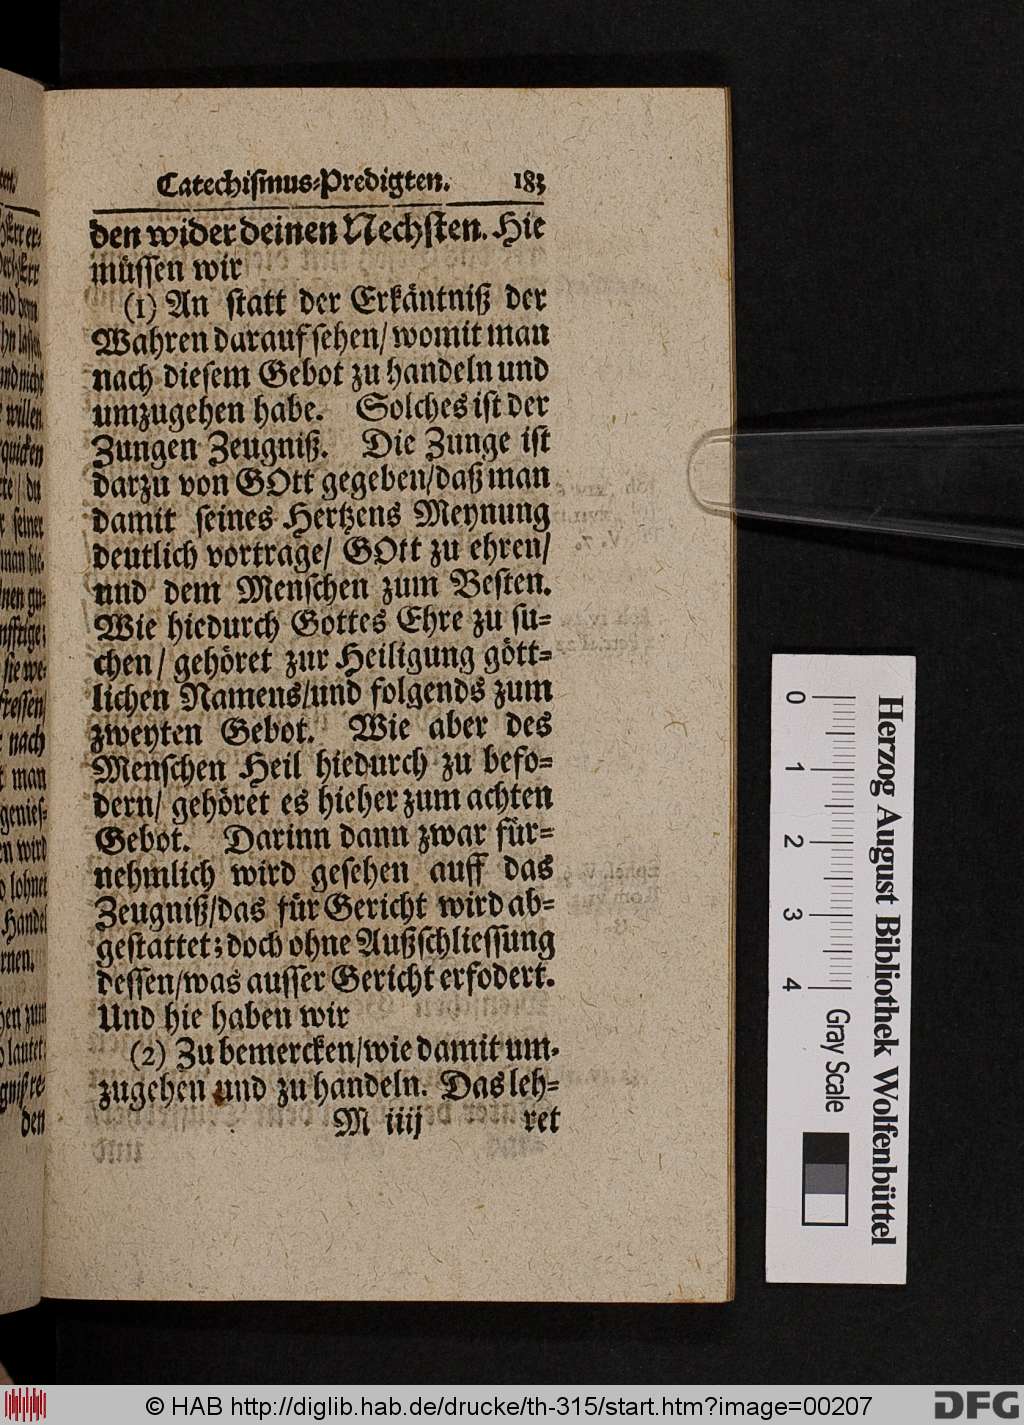 Catechiſmus-Predigten. 183
den wider deinen Nechſten. Hie
müſſen wir
(1) An ſtatt der Erkäntniß der
Wahren darauf ſehen/ womit man
nach dieſem Gebot zu handeln und
umzugehen habe. Solches iſt der
Zungen Zeugniß. Die Zunge iſt
darzu von GOtt gegeben/daß man
damit ſeines Hertzens Meynung
deutlich vortrage/ GOtt zu ehren/
und dem Menſchen zum Beſten.
Wie hiedurch Gottes Ehre zu ſu=
chen/ gehöret zur Heiligung gött=
lichen Namens/und folgends zum
zweyten Gebot. Wie aber des
Menſchen Heil hiedurch zu befo=
dern/ gehöret es hieher zum achten
Gebot. Darinn dann zwar für=
nehmlich wird geſehen auff das
Zeugniß/das für Gericht wird ab=
geſtattet; doch ohne Außſchlieſſung
deſſen/was auſſer Gericht erfodert.
Und hie haben wir
(2) Zu bemercken/wie damit um-
zugehen und zu handeln. Das leh=
M iiij ret
Herzog August Bibliothek Wolfenbüttel
0 1 2 3 4 Gray Scale
© HAB http://diglib.hab.de/drucke/th-315/start.htm?image=00207
DFG